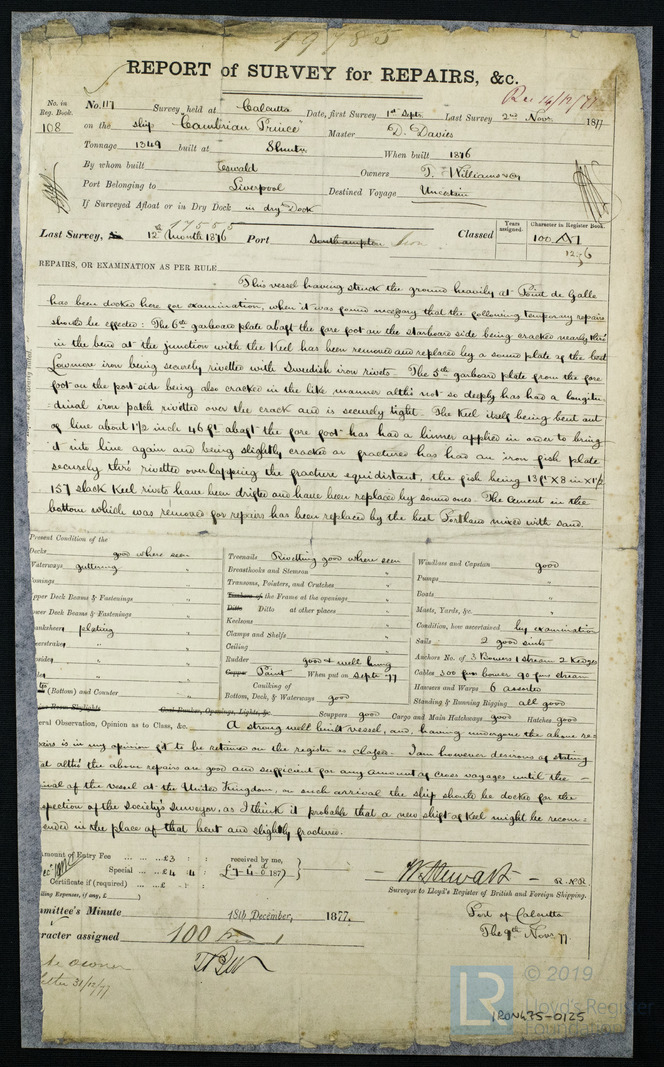 19785
REPORT of SURVEY for REPAIRS, &c.
Rec 14/12/77
No. in Reg. Book.
108
No. 117 Survey held at Calcutta Date, first Survey 1st Septr Last Survey 2nd Novr 1877
on the ship "Cambrian Prince" Master D. Davies
Tonnage 1349 built at Shunter When built 1876
By whom built Oswald Owners T. Williams & Co
Port Belonging to Liverpool Destined Voyage Uncertain
If Surveyed Afloat or in Dry Dock in dry Dock
17555
Last Survey, 12th Month 1876 Port Southampton Iron Classed
Years assigned.
Character in Register Book.
100 A1
12,76
REPAIRS, OR EXAMINATION AS PER RULE
This vessel having struck the ground heavily at Point de Galle
has been docked here for examination, when it was found necessary that the following temporary repairs
should be effected: The 6th garboard plate abaft the fore foot on the starboard side being cracked nearly thro'
in the bend at the junction with the Keel has been removed and replaced by a sound plate of the best
Lowmoor iron being securely rivetted with Swedish iron rivets. The 5th garboard plate from the fore
foot on the port side being also cracked in the like manner altho' not so deeply has had a longitu-
dinal iron patch rivetted over the crack and is securely tight. The Keel itself being bent out
of line about 1 1/2 inch 46 ft abaft the fore foot has had a applied in order to bring
it into line again and being slightly cracked or fractured has had an iron fish plate
securely thro' rivetted overlapping the fracture equidistant, the fish being 13 ft x 8 in x 1 1/2
157 slack Keel rivets have been drifted and have been replaced by sound ones. The cement in the
bottom which was removed for repairs has been replaced by the best Portland mixed with sand.
Present Condition of the
Decks good where seen
Waterways guttering "
"
Upper Deck Beams & Fastenings "
Lower Deck Beams & Fastenings "
Planksheers plating "
"
"
"
(Bottom) and Counter "
Treenails Rivetting good where seen
Breasthooks and Stemson "
Transoms, Pointers, and Crutches "
Timbers of the Frame at the openings "
Ditto Ditto at other places "
Keelsons "
Clamps and Shelfs "
Ceiling "
Rudder good & well hung
Copper Paint When put on Septr 77
Caulking of Bottom, Deck, & Waterways good
Coal Bunker, Openings, Lights, &c.
Scuppers good Cargo and Main Hatchways good Hatches good
Windlass and Capstan good
Pumps "
Boats "
Masts, Yards, &c. "
Condition, how ascertained by examination
Sails 2 good suits
Anchors No. of 3 Bowers 1 stream 2 Kedges
Cables 300 fms bower 90 fms stream
Hawsers and Warps 6 assorted
Standing & Running Rigging all good
General Observation, Opinion as to Class, &c. A strong well built vessel, and, having undergone the above re=
pairs is in my opinion fit to be retained on the register as classed. I am however desirous of stating
that altho' the above repairs are good and sufficient for any amount of cross voyages until the
arrival of the vessel at the United Kingdom, on such arrival the ship should be docked for the
inspection of the Society's Surveyor, as I think it probable that a new shift of Keel might be recom=
mended in the place of that bent and slightly fractured.
Amount of Entry Fee ... £3 : :
Special ... £4 4 :
Certificate if (required) ... £ : :
Travelling Expenses, if any, £
received by me,
£7-4-0 1877
W. Stewart R.N.R.
Surveyor to Lloyd's Register of British and Foreign Shipping.
Port of Calcutta
The 9th Novr 77
Committee's Minute 18th December, 1877.
Character assigned 100 A 1
owner
letter 31/12/77
© 2019
LR Lloyd's Register Foundation
IRON475-0125